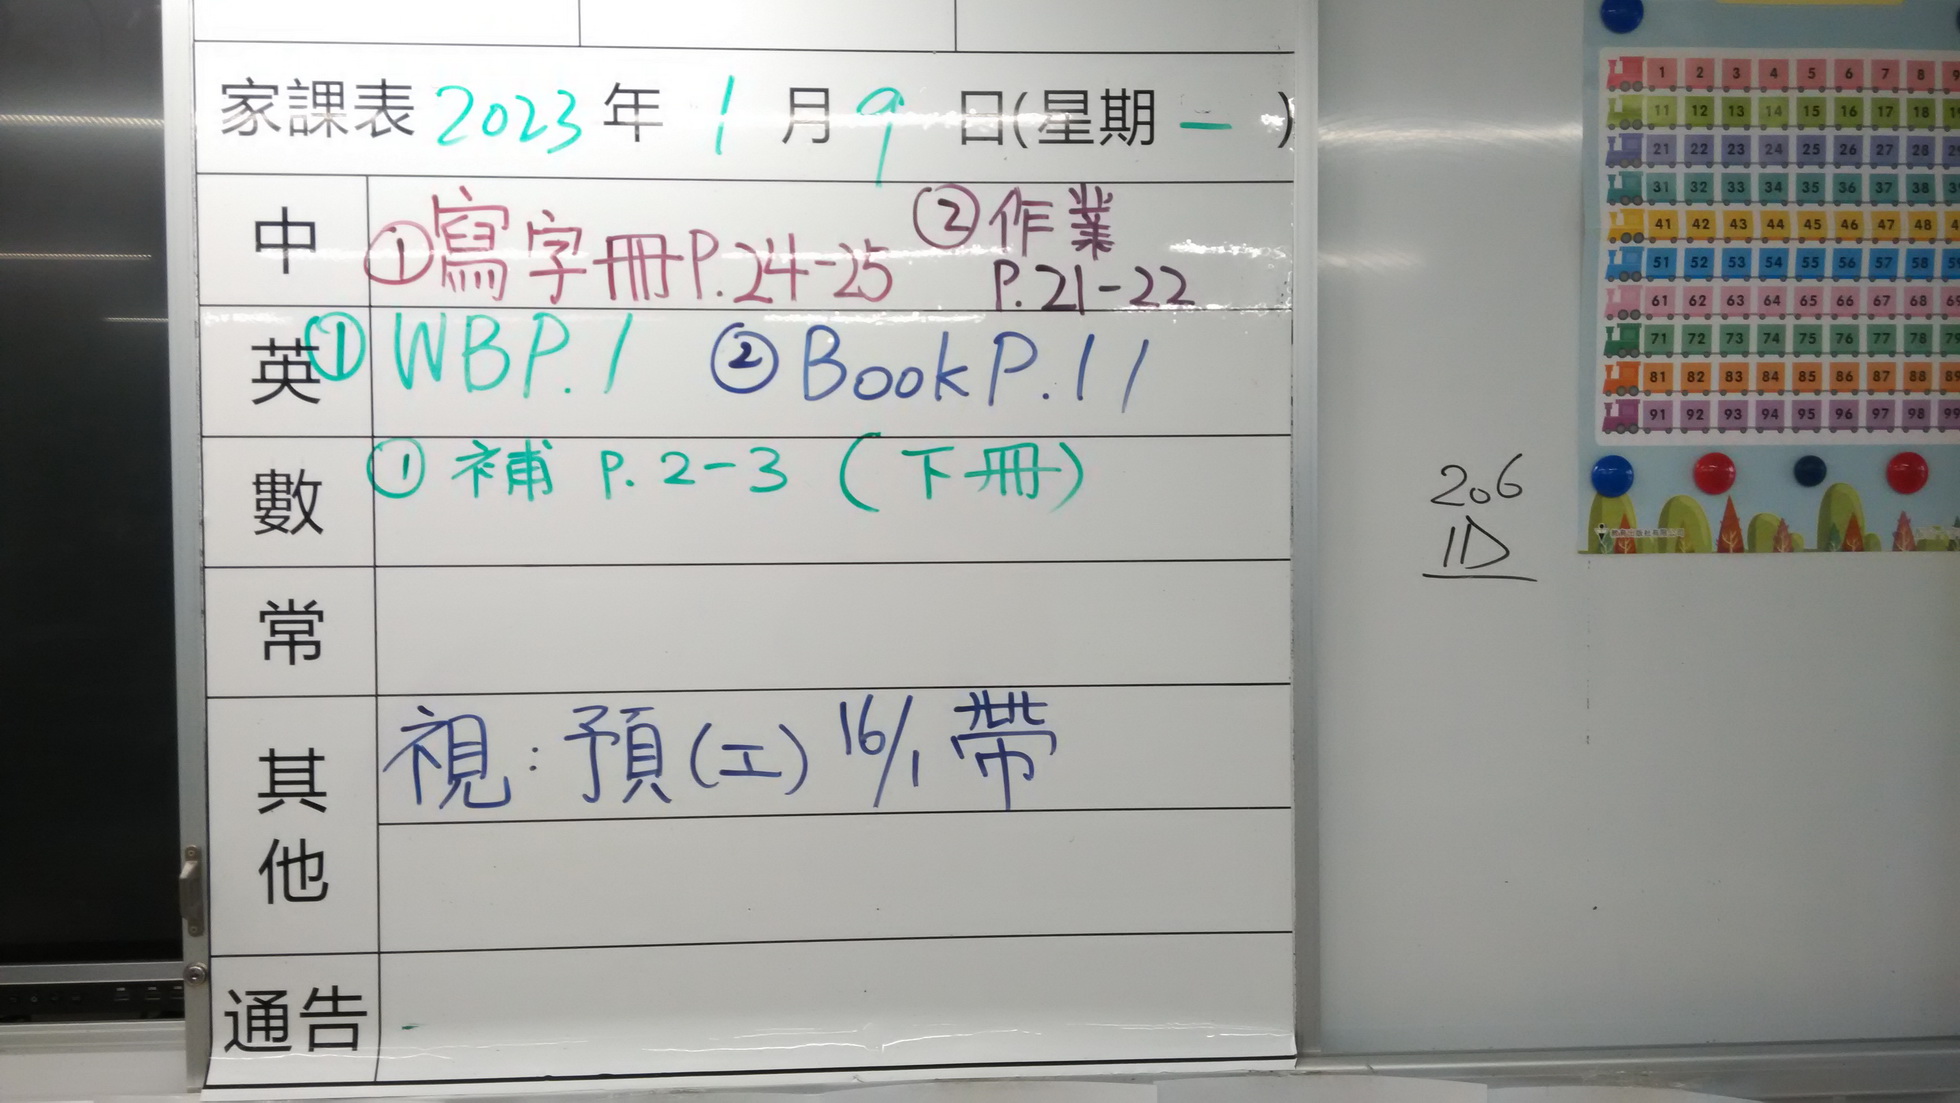 家課表 2023 年 1 月 9 日(星期 一 )
中 ①寫字冊P.24-25 ②作業 P.21-22
英 ① WBP.1 ② Book P.11
數 ① 補 P.2-3 (下冊)
常
其他 視:預(工) 16/1 帶
通告
206
1D
1 2 3 4 5 6 7 8 9
11 12 13 14 15 16 17 18
21 22 23 24 25 26 27 28
31 32 33 34 35 36 37 38
41 42 43 44 45 46 47 48
51 52 53 54 55 56 57 58
61 62 63 64 65 66 67 68 69
71 72 73 74 75 76 77 78 79
81 82 83 84 85 86 87 88 89
91 92 93 94 95 96 97 98 99